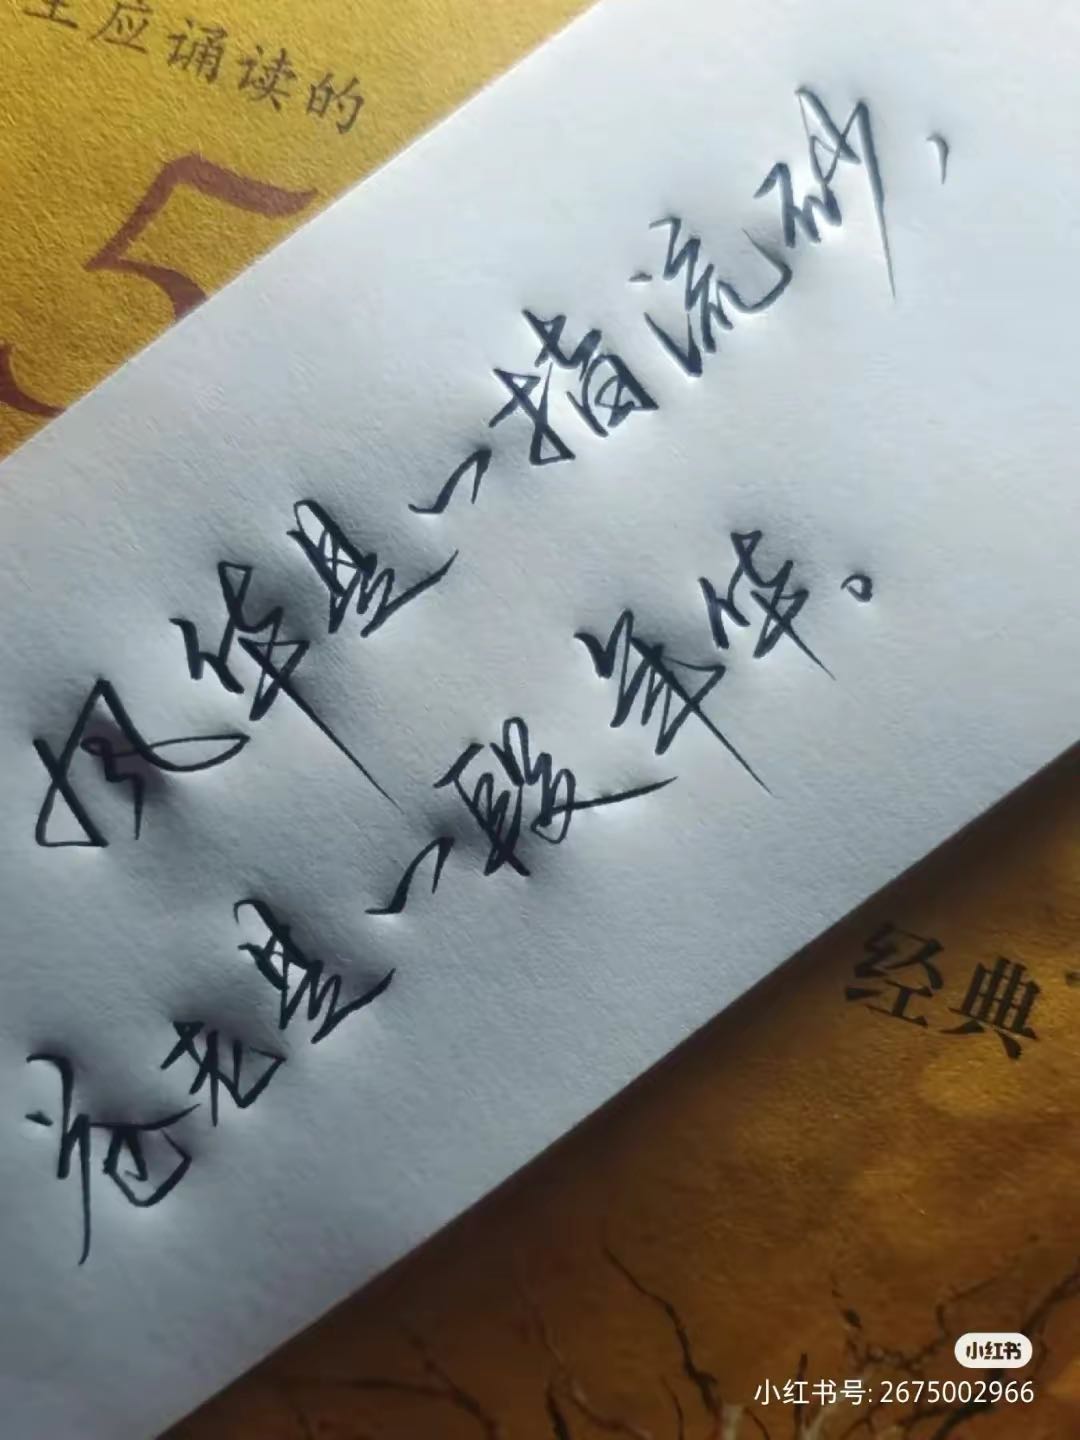 生应诵读的
5
反华里一指流砂，
苍老里一段年华。
经典
小红书
小红书号: 2675002966